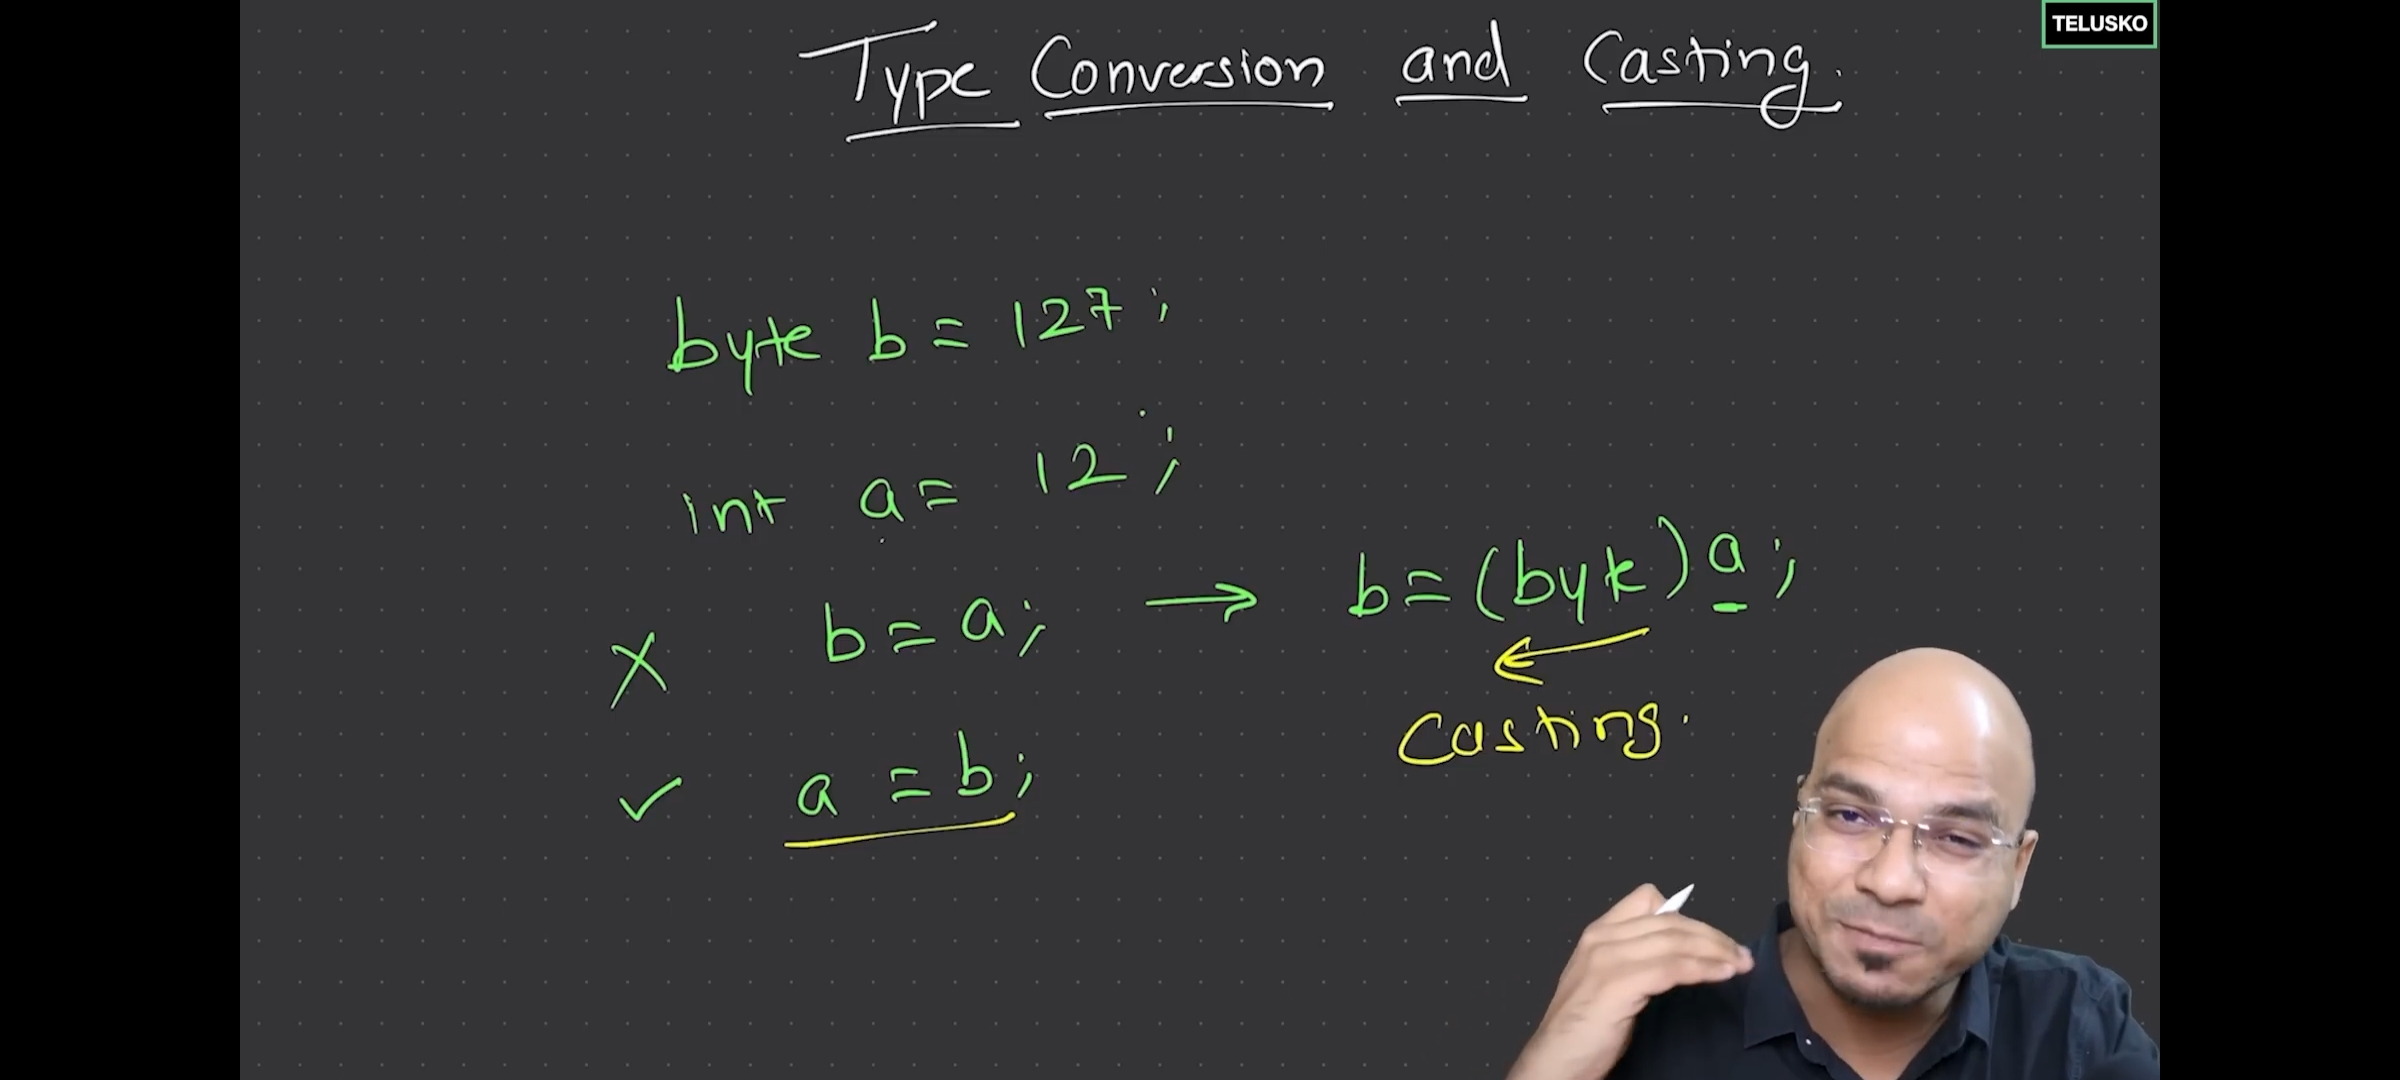 TELUSKO
Type Conversion and Casting.
byte b = 127;
int a = 12;
X b = a; → b = (byte) a;
Casting.
✓ a = b;